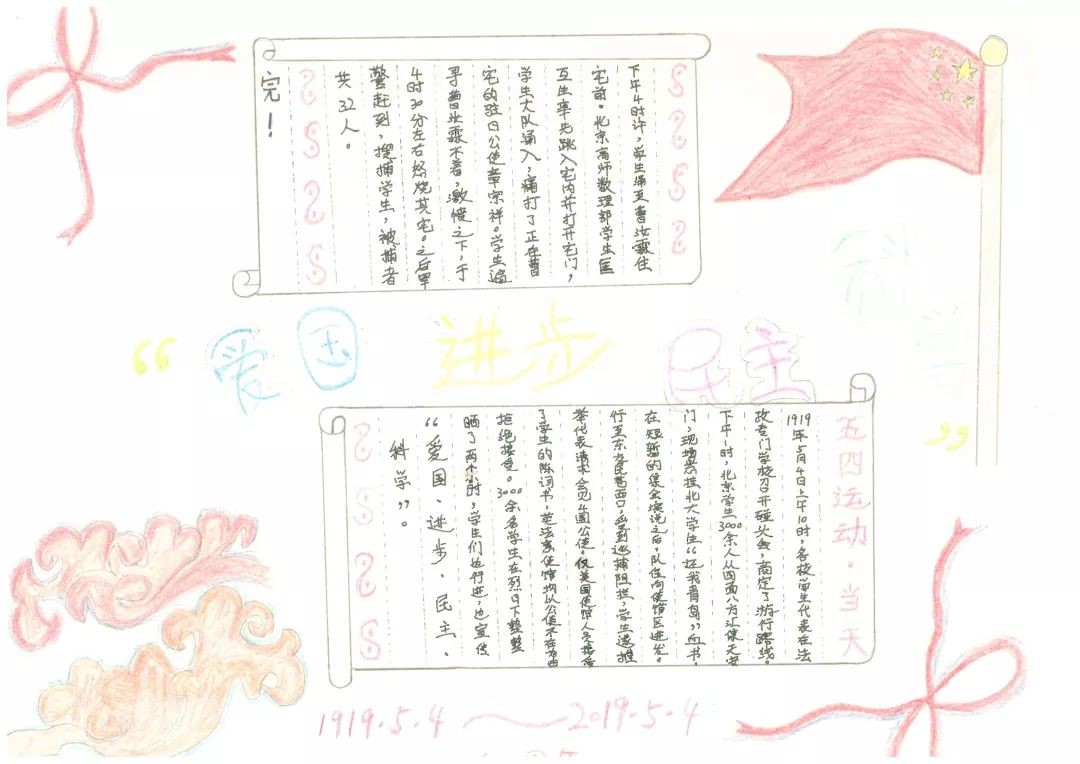 下午4时许，学生涌至曹汝霖住
宅前。北京高师数理部学生匡
互生率先跳入宅内并打开宅门，
学生大队涌入，痛打了正在曹
宅的驻日公使章宗祥。学生遍
寻曹汝霖不着，激愤之下，于
4时30分左右怒烧其宅。之后军
警赶到，搜捕学生，被捕者
共32人。
完！
“爱国 进步 民主 科学”
五四运动·当天
1919年5月4日上午10时，各校学生代表在法
政专门学校召开碰头会，商定了游行路线。
下午1时，北京学生3000余人从四面八方汇集天安
门，现场悬挂北大学生“还我青岛”血书。
在短暂的集会演说之后，队伍向使馆区进发。
行至东交民巷西口，受到巡捕阻拦，学生遂推
举代表请求会见4国公使。仅美国使馆人员接受
了学生的陈词书，英法意使馆均以公使不在为由
拒绝接受。3000余名学生在烈日下整整
晒了两个小时，学生们边行进，边宣传
“爱国、进步、民主、
科学”。
1919.5.4～2019.5.4